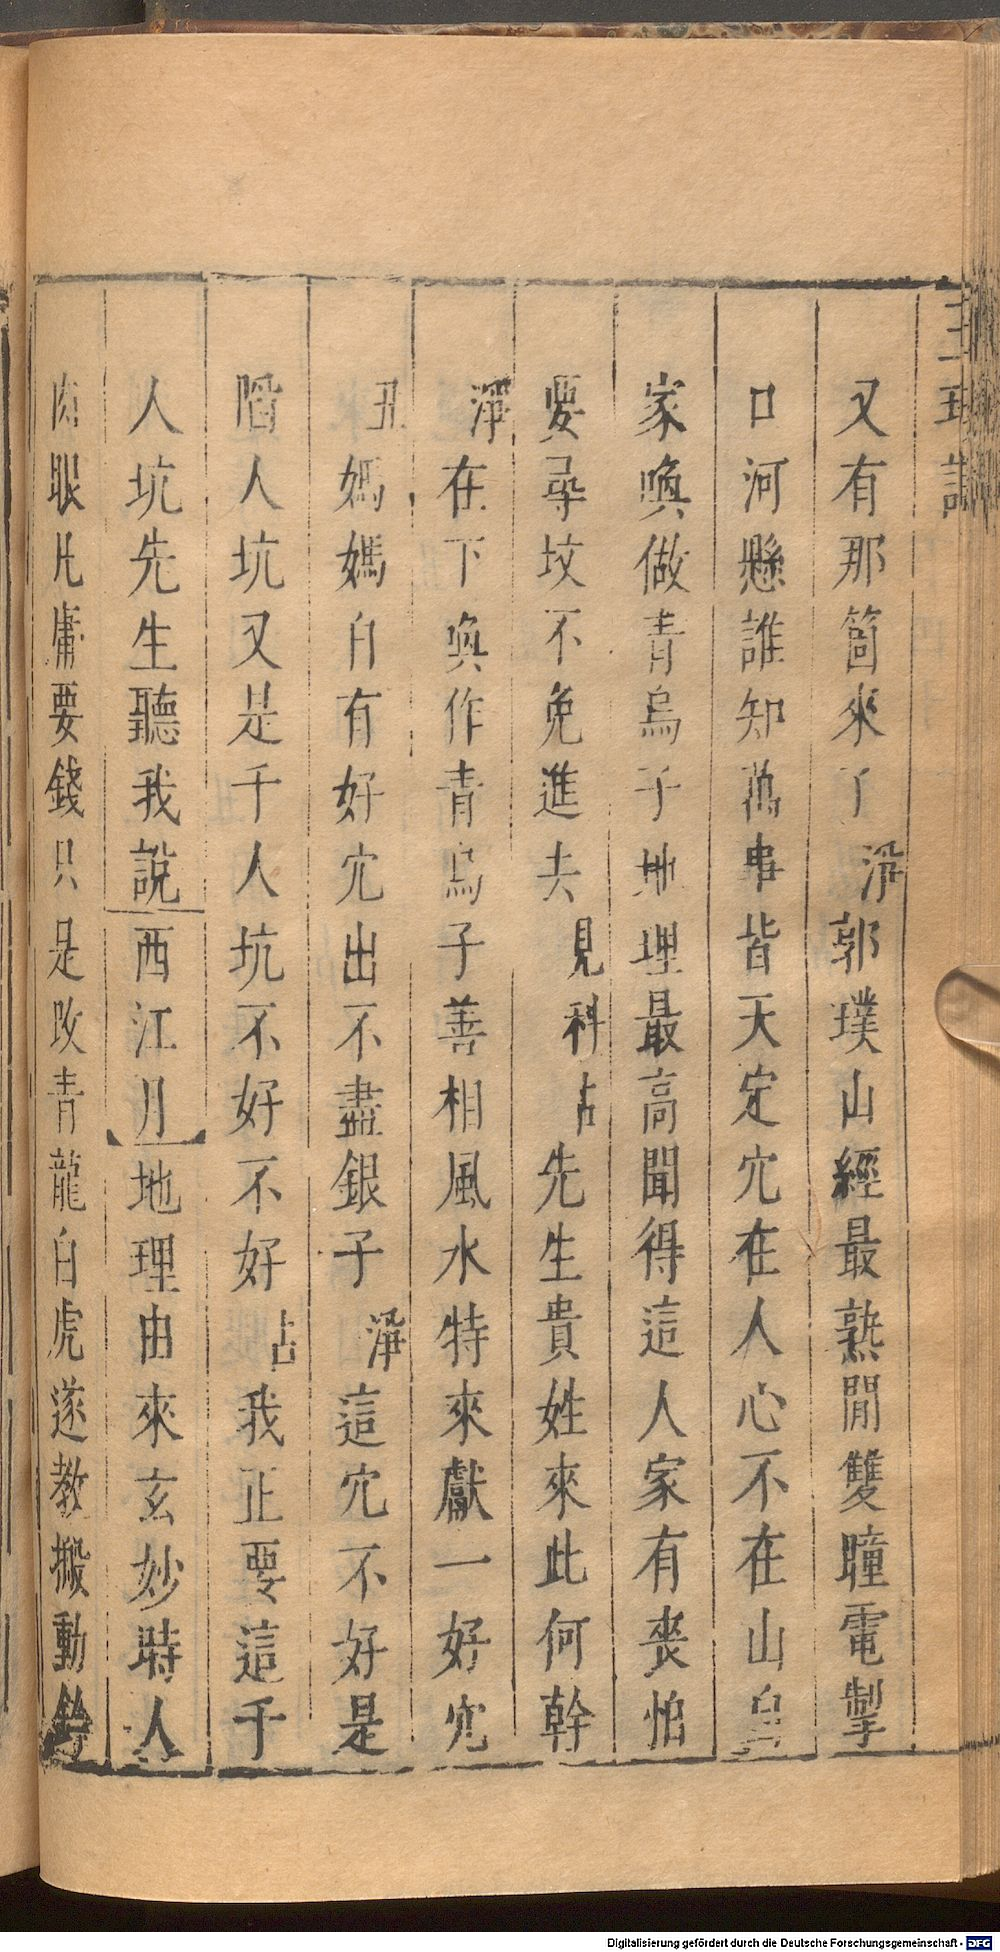 又有那箇來了淨郭璞山經最熟閒雙瞳電掣
口河懸誰知萬事皆天定穴在人心不在山自
家喚做青烏子地理最高聞得這人家有喪怕
要尋坟不免進去見科占先生貴姓來此何幹
淨在下喚作青烏子善相風水特來獻一好穴
丑媽媽自有好穴出不盡銀子淨這穴不好是
陷人坑又是千人坑不好不好占我正要這千
人坑先生聽我說西江月地理由來玄妙時人
肉眼凡庸要錢只是改青龍白虎遂教搬動
Digitalisierung gefördert durch die Deutsche Forschungsgemeinschaft - DFG